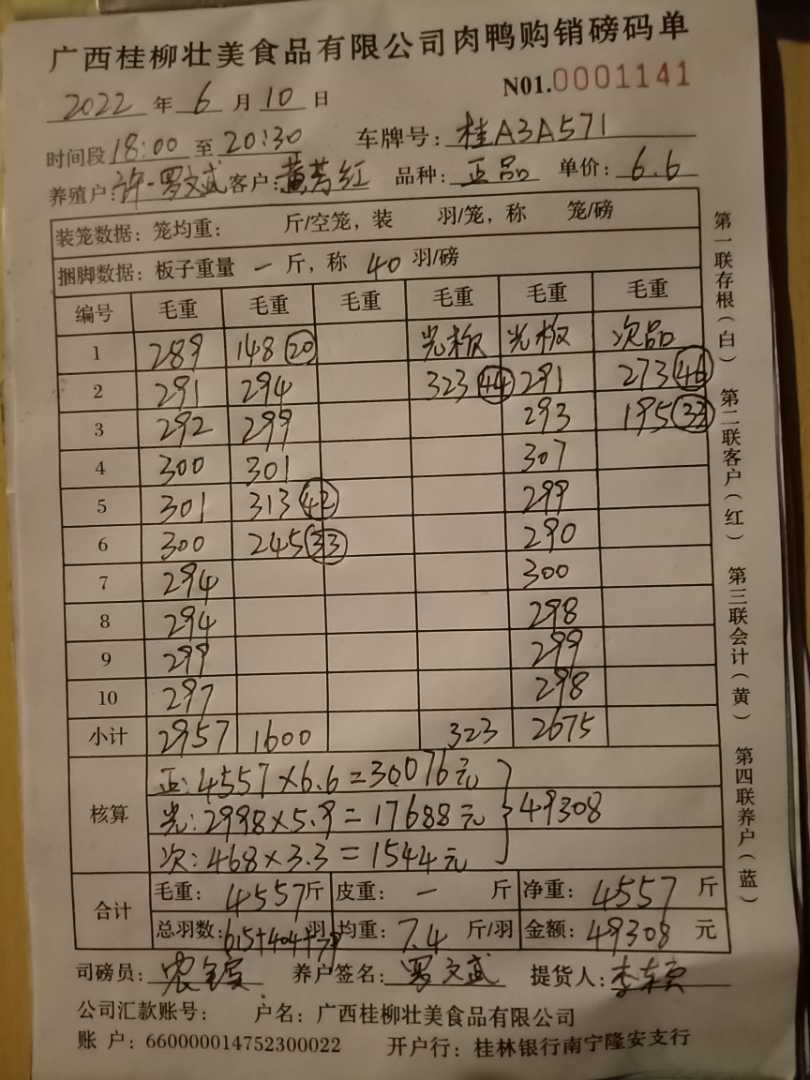 广西桂柳壮美食品有限公司肉鸭购销磅码单
2022 年 6 月 10 日 N01.0001141
时间段 18:00 至 20:30 车牌号: 桂A3A571
养殖户: 许一罗文武 客户: 黄芳红 品种: 正品 单价: 6.6
装笼数据: 笼均重: 斤/空笼, 装 羽/笼, 称 笼/磅
捆脚数据: 板子重量 一 斤, 称 40 羽/磅
编号 毛重 毛重 毛重 毛重 毛重 毛重
1 289 148(20) 光板 光板 次品
2 291 294 323(44) 291 273(46)
3 292 299 293 195(33)
4 300 301 307
5 301 313(42) 299
6 300 245(33) 290
7 294 300
8 294 298
9 299 299
10 297 298
小计 2957 1600 323 2675
核算 正: 4557×6.6=30076元
光: 2998×5.9=17688元 49308
次: 468×3.3=1544元
合计 毛重: 4557斤 皮重: 一 斤 净重: 4557 斤
总羽数: 615+404+79羽 均重: 7.4 斤/羽 金额: 49308 元
司磅员: 养户签名: 罗文武 提货人:
公司汇款账号: 户名: 广西桂柳壮美食品有限公司
账 户: 660000014752300022 开户行: 桂林银行南宁隆安支行
第一联存根(白) 第二联客户(红) 第三联会计(黄) 第四联养户(蓝)